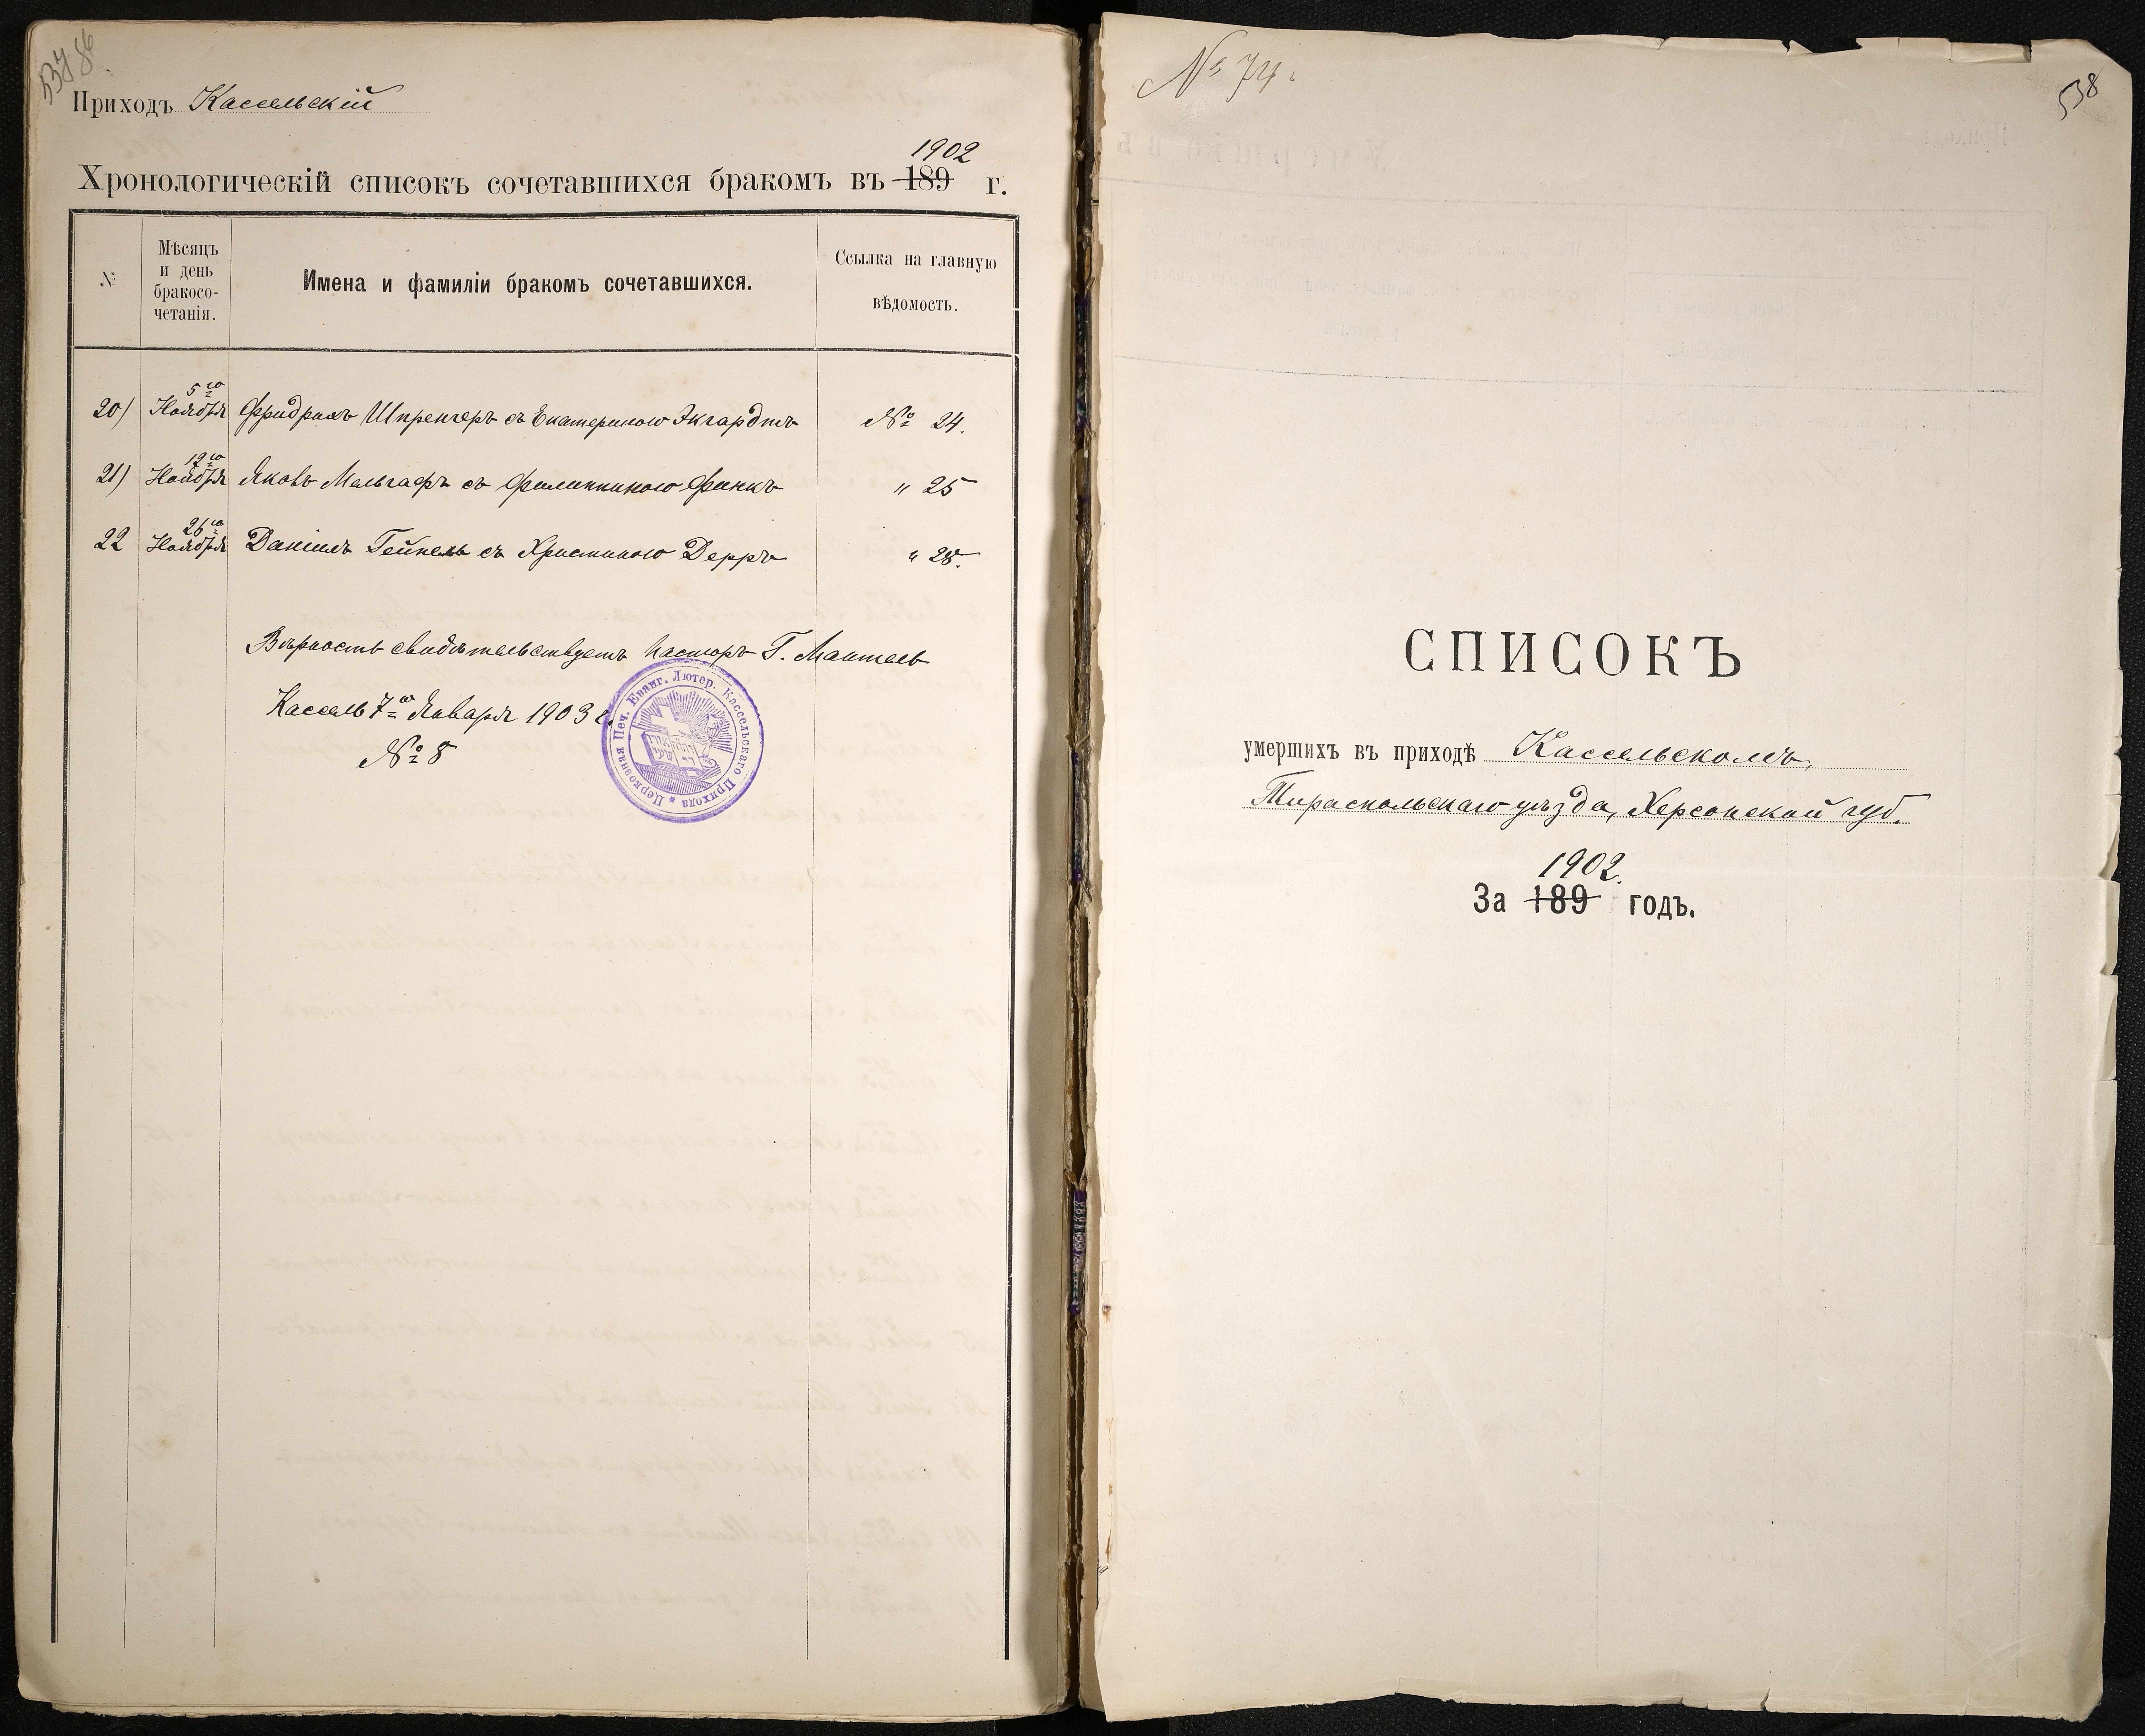 Приходъ Кассельскій
1902
Хронологическій списокъ сочетавшихся бракомъ въ 189 г.
№
Мѣсяцъ
и день
бракосо-
четанія.
Имена и фамиліи бракомъ сочетавшихся.
Ссылка на главную
вѣдомость.
20) 5го Ноября Фридрихъ Шпренгеръ съ Екатериною Экгардтъ № 24.
21) 12го Ноября Яковъ Мальгафъ съ Филиппиною Финкъ " 25
22 26го Ноября Даніилъ Гейнель съ Христиною Дерръ " 28.
Вѣрность свидѣтельствуетъ Пасторъ Г. Мантель
Кассель 7го Января 1903 г.
№ 8
Церковная Печ. Еванг. Лютер. Кассельскаго Прихода *
№ 74.
538
СПИСОКЪ
умершихъ въ приходѣ Кассельскомъ,
Тираспольскаго уѣзда, Херсонской губ.
1902.
За 189 годъ.